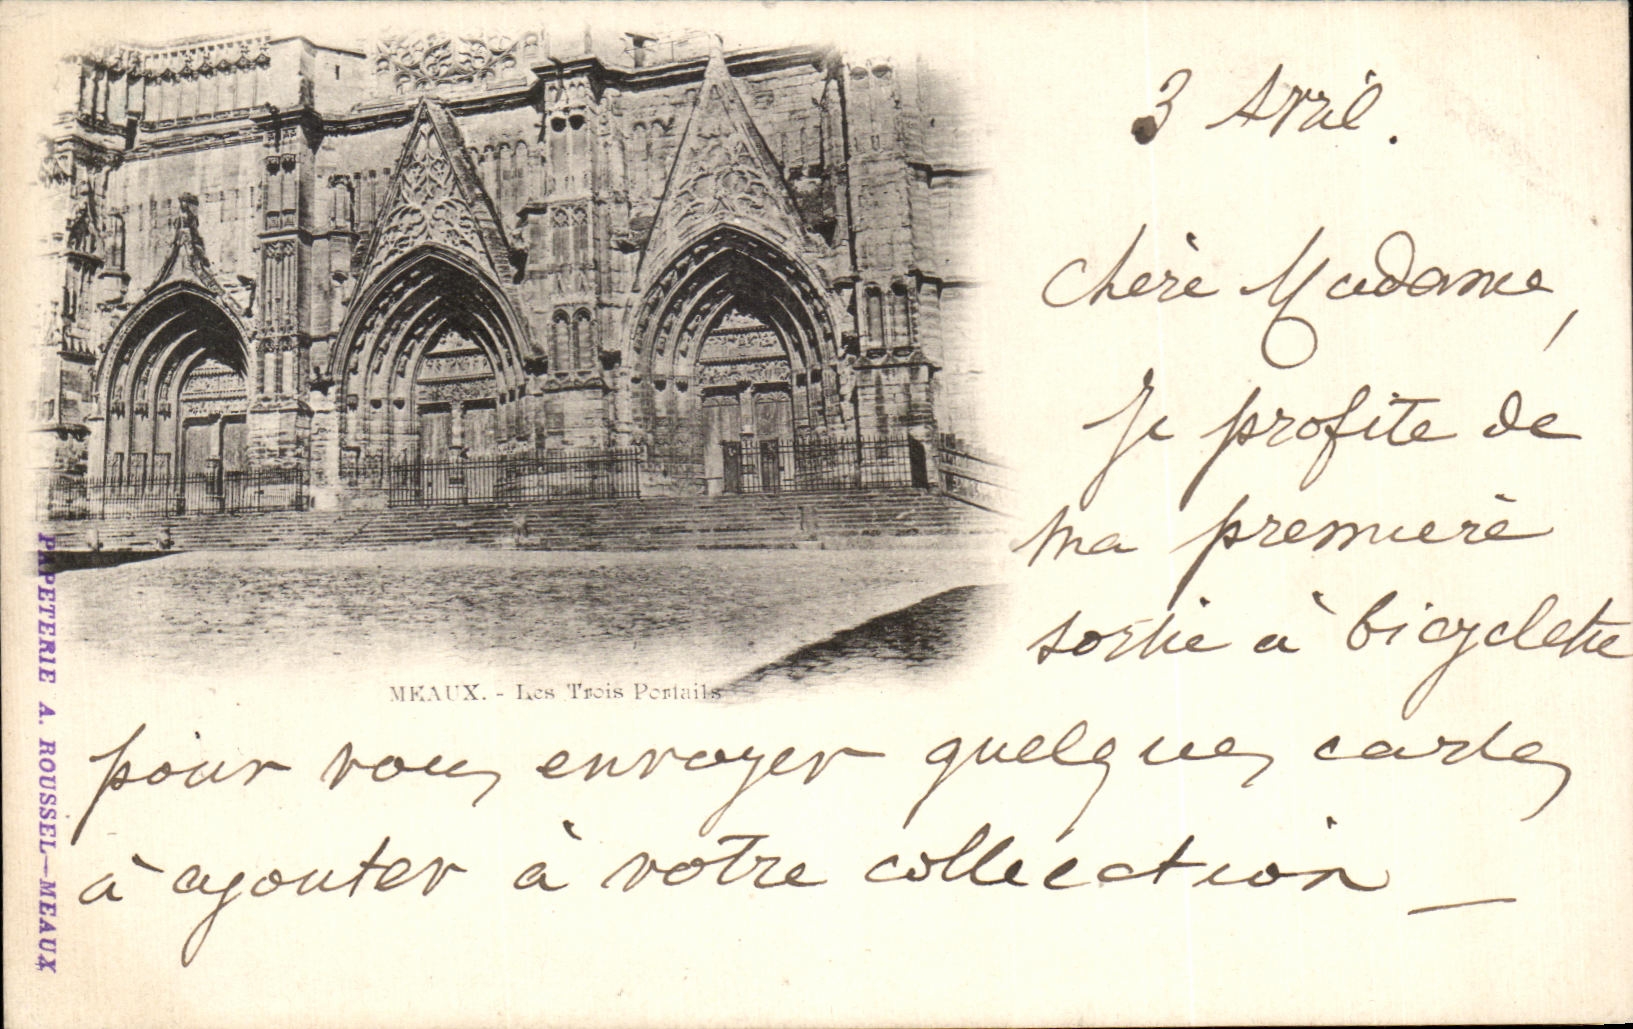 3 Avril.
Chère Madame,
Je profite de
ma première
sortie à bicyclette
pour vous envoyer quelques cartes
à ajouter à votre collection —
MEAUX. - Les Trois Portails
PAPETERIE A. ROUSSEL—MEAUX